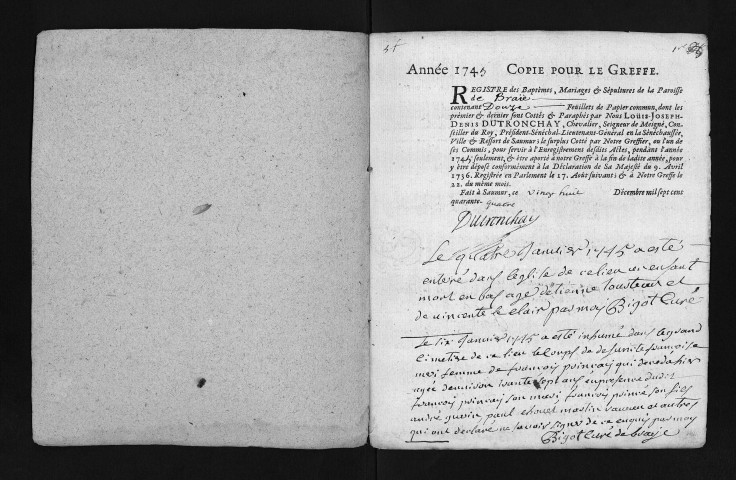 Année 1745 COPIE POUR LE GREFFE.
REGISTRE des Baptêmes, Mariages & Sépultures de la Paroisse
de Braie
contenant Douze Feuillets de Papier commun, dont les
prémier & dernier sont Cottés & Paraphés par Nous LOUIS-JOSEPH-
DENIS DUTRONCHAY, Chevalier, Seigneur de Meigné, Con-
seiller du Roy, Président-Sénéchal-Lieutenant-Général en la Sénéchaussée,
Ville & Ressort de Saumur; le surplus Cotté par Notre Greffier, ou l'un de
ses Commis, pour servir à l'Enregistrement desdits Actes, pendant l'année
1745 seulement, & être aporté à notre Greffe à la fin de ladite année, pour
y être déposé conformément à la Déclaration de Sa Majesté du 9. Avril
1736. Registrée en Parlement le 17. Aout suivant; & à Notre Greffe le
22. du même mois.
Fait à Saumur, ce vingt huit Décembre mil sept cens
quarante-quatre
Dutronchay
Le quatre Janvier 1745 a esté
enteré dans leglise de ce lieu un enfant
mort en bas age d'etienne et
de vincente le clair par moy Bigot Curé
Le six Janvier 1745 a esté inhumé dans le grand
Cimetire de ce lieu le corps de francoise
femme de francois poinçay qui
agée de soixante sept ans en presence dudit
francois poinçay son mary francois son fils
andré guerin paul martin et autres
qui ont declaré ne savoir signer de ce enquis par moy
Bigot Curé de braye